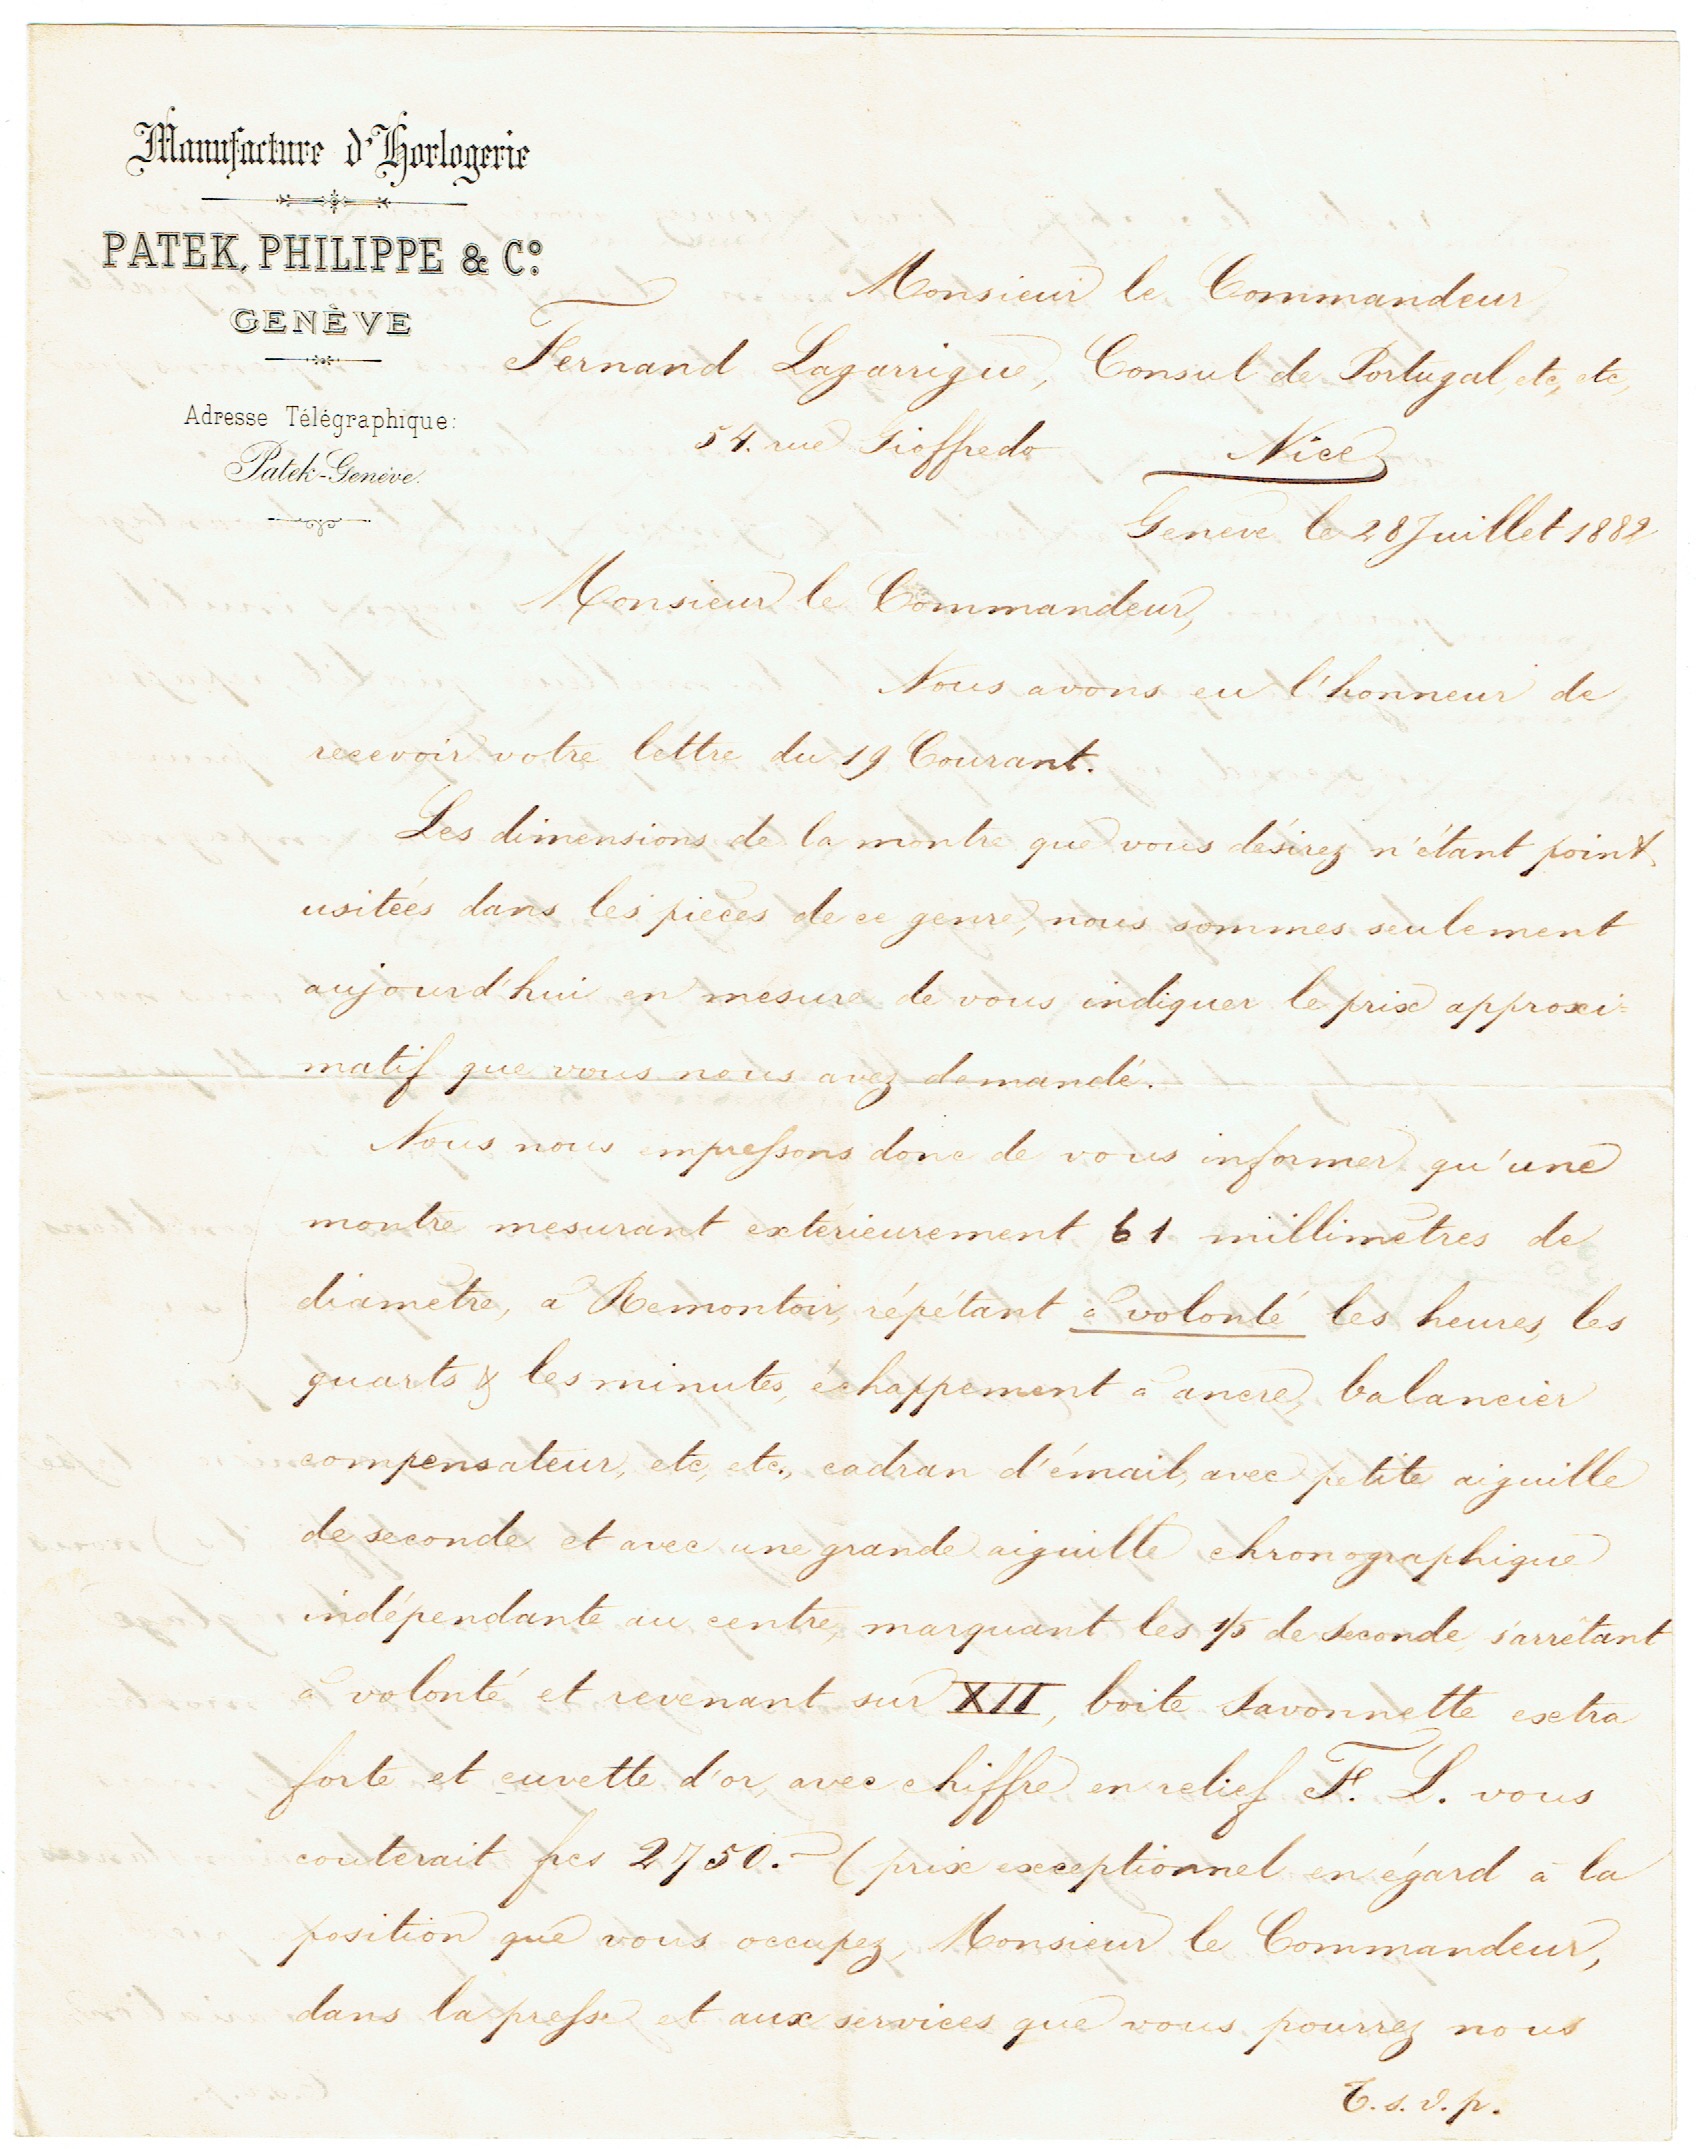 Manufacture d'Horlogerie
PATEK, PHILIPPE & Cº.
GENÈVE
Adresse Télégraphique:
Patek-Genève.
Monsieur le Commandeur
Fernand Lagarrigue, Consul de Portugal, etc, etc,
54. rue Gioffredo Nice
Genève le 28 Juillet 1882
Monsieur le Commandeur,
Nous avons eu l'honneur de
recevoir votre lettre du 19 Courant.
Les dimensions de la montre que vous désirez n'étant point
usitées dans les pièces de ce genre, nous sommes seulement
aujourd'hui en mesure de vous indiquer le prix approxi=
matif que vous nous avez demandé.
Nous nous empressons donc de vous informer qu'une
montre mesurant extérieurement 61 millimètres de
diamètre, à Remontoir, répétant à volonté les heures, les
quarts & les minutes, échappement à ancre, balancier
compensateur, etc, etc., cadran d'émail, avec petite aiguille
de seconde et avec une grande aiguille chronographique
indépendante au centre, marquant les 1/5 de seconde, s'arrêtant
à volonté et revenant sur XII, boite Savonnette extra
forte et cuvette d'or, avec chiffre en relief F. L. vous
couterait frcs 2750.- (prix exceptionnel en égard à la
position que vous occupez, Monsieur le Commandeur,
dans la presse et aux services que vous pourrez nous
T. s. v. p.